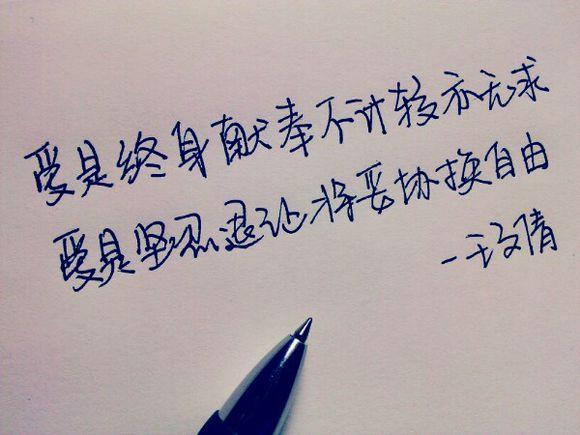 爱是终身献奉不计较亦无求
爱是坚忍退让将妥协换自由